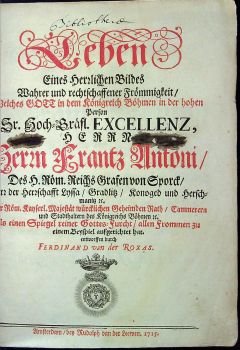 Bibliotheca
Leben
Eines Herrlichen Bildes
Wahrer und rechtschaffener Frömmigkeit/
Welches GOTT in dem Königreich Böhmen in der hohen
Person
Sr. Hoch-Gräfl. EXCELLENZ,
HERRN
Herrn Frantz Antoni/
Des H. Röm. Reichs Grafen von Sporck/
Herrn der Herrschafft Lyssa/ Gradlitz/ Konoged und Hersch-
mantz ꝛc.
Der Röm. Käyserl. Majestät würcklichen Geheimden Rath/ Cammerern
und Stadthaltern des Königreichs Böhmen ꝛc.
als einen Spiegel reiner Gottes-Furcht/ allen Frommen zu
einem Beyspiel aufgerichtet hat.
entworffen durch
FERDINAND van der ROXAS.
Amsterdam/ bey Rudolph van der Leewen. 1715.